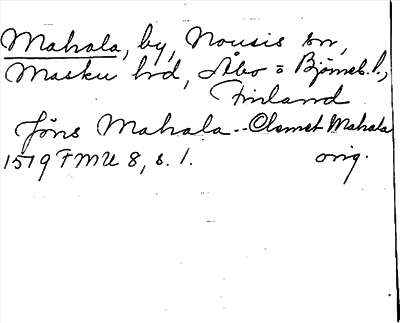 Mahala, by, Nousis sn,
Masku hd, Åbo = Björneb. l.,
Finland
Jöns Mahala -- Clemet Mahala
1519 FMU 8, s. 1. orig.